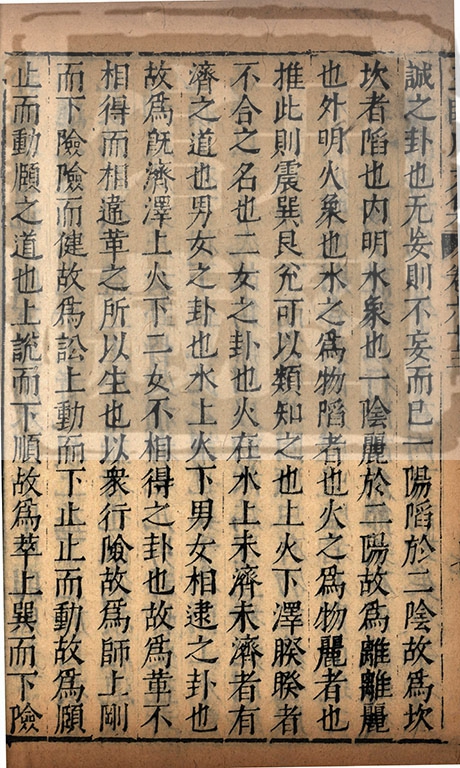 誠之卦也无妄則不妄而已一陽䧟於二陰故爲坎
坎者䧟也内明水象也一陰麗於二陽故爲離離麗
也外明火象也水之爲物䧟者也火之爲物麗者也
推此則震巽艮兊可以類知之也上火下澤睽睽者
不合之名也二女之卦也火在水上未濟未濟者有
濟之道也男女之卦也水上火下男女相逮之卦也
故爲旣濟澤上火下二女不相得之卦也故爲革不
相得而相違革之所以生也以衆行險故爲師上剛
而下險險而健故爲訟上動而下止止而動故爲頥
止而動頥之道也上說而下順故爲萃上巽而下險